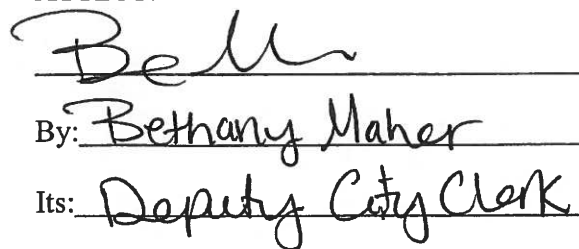 Be
By: Bethany Maher
Its: Deputy City Clerk